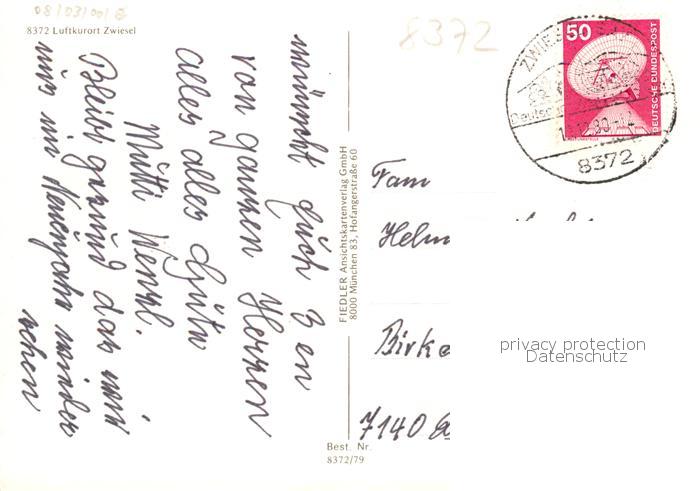 08/03/001 B
8372 Luftkurort Zwiesel
8372
wünscht Euch 3 en
von ganzen Herzen
alles alles Gute
Mutti Wenzl.
Bleibt gesund das wir
uns im Neuenjahr wieder
sehen
FIEDLER Ansichtskartenverlag GmbH
8000 München 83, Hofangerstraße 60
Best. Nr.
8372/79
50
DEUTSCHE BUNDESPOST
ZWIESEL
8372
Fam
Helm
Birke
7140
privacy protection
Datenschutz